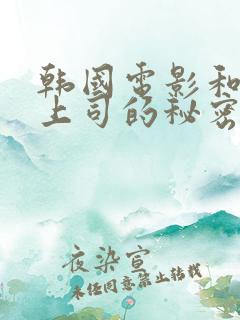 韩國电影和
上司的秘密
夜染宣
未经同意禁止转载